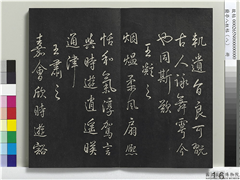 軌遺音良可翫
古人詠舞雩今
也同斯歎
王凝之
烟熅柔風扇熙
怡和氣淳駕言
興時遊逍遙暎
通津
王肅之
嘉會欣時遊豁